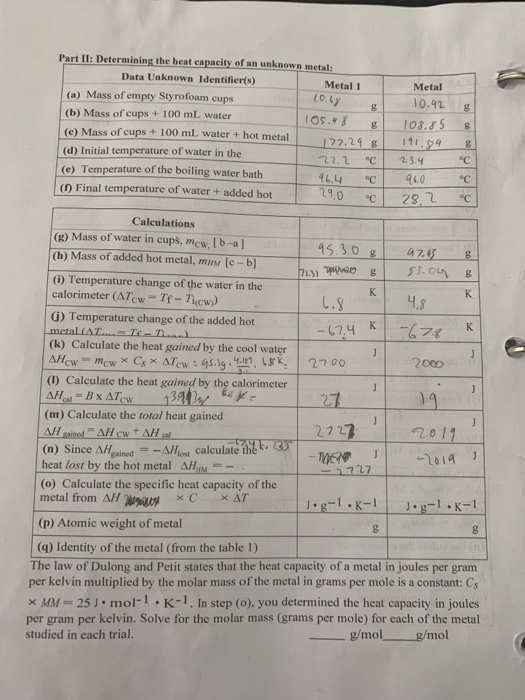 Part II: Determining the heat capacity of an unknown metal:
Data Unknown Identifier(s) Metal 1 Metal
(a) Mass of empty Styrofoam cups 10.68 g 10.92 g
(b) Mass of cups + 100 mL water 105.98 g 108.85 g
(c) Mass of cups + 100 mL water + hot metal 177.29 g 191.89 g
(d) Initial temperature of water in the 22.2 °C 23.4 °C
(e) Temperature of the boiling water bath 96.4 °C 96.0 °C
(f) Final temperature of water + added hot 29.0 °C 28.2 °C
Calculations
(g) Mass of water in cups, mcw, [b–a] 95.30 g 97.93 g
(h) Mass of added hot metal, mHM [c – b] 71.31 g g
(i) Temperature change of the water in the
calorimeter (ΔTCW = Tf – Ti(CW)) 6.8 K 4.8 K
(j) Temperature change of the added hot
metal (ΔT – 67.4 K –67.8 K
(k) Calculate the heat gained by the cool water J J
ΔHCW = mCW × Cs × ΔTCW 2700 2000
(l) Calculate the heat gained by the calorimeter J J
ΔHcal = B x ΔTCW 27 19
(m) Calculate the total heat gained J J
ΔHgained = ΔHCW + ΔHcal 2727 2019
(n) Since ΔHgained = –ΔHlost calculate the
heat lost by the hot metal ΔHHM = – –2727 J –2019 J
(o) Calculate the specific heat capacity of the
metal from ΔH × C × ΔT J•g–1•K–1 J•g–1•K–1
(p) Atomic weight of metal g g
(q) Identity of the metal (from the table 1)
The law of Dulong and Petit states that the heat capacity of a metal in joules per gram
per kelvin multiplied by the molar mass of the metal in grams per mole is a constant: Cs
× MM = 25 J•mol-1•K-1. In step (o), you determined the heat capacity in joules
per gram per kelvin. Solve for the molar mass (grams per mole) for each of the metal
studied in each trial. ____ g/mol____g/mol